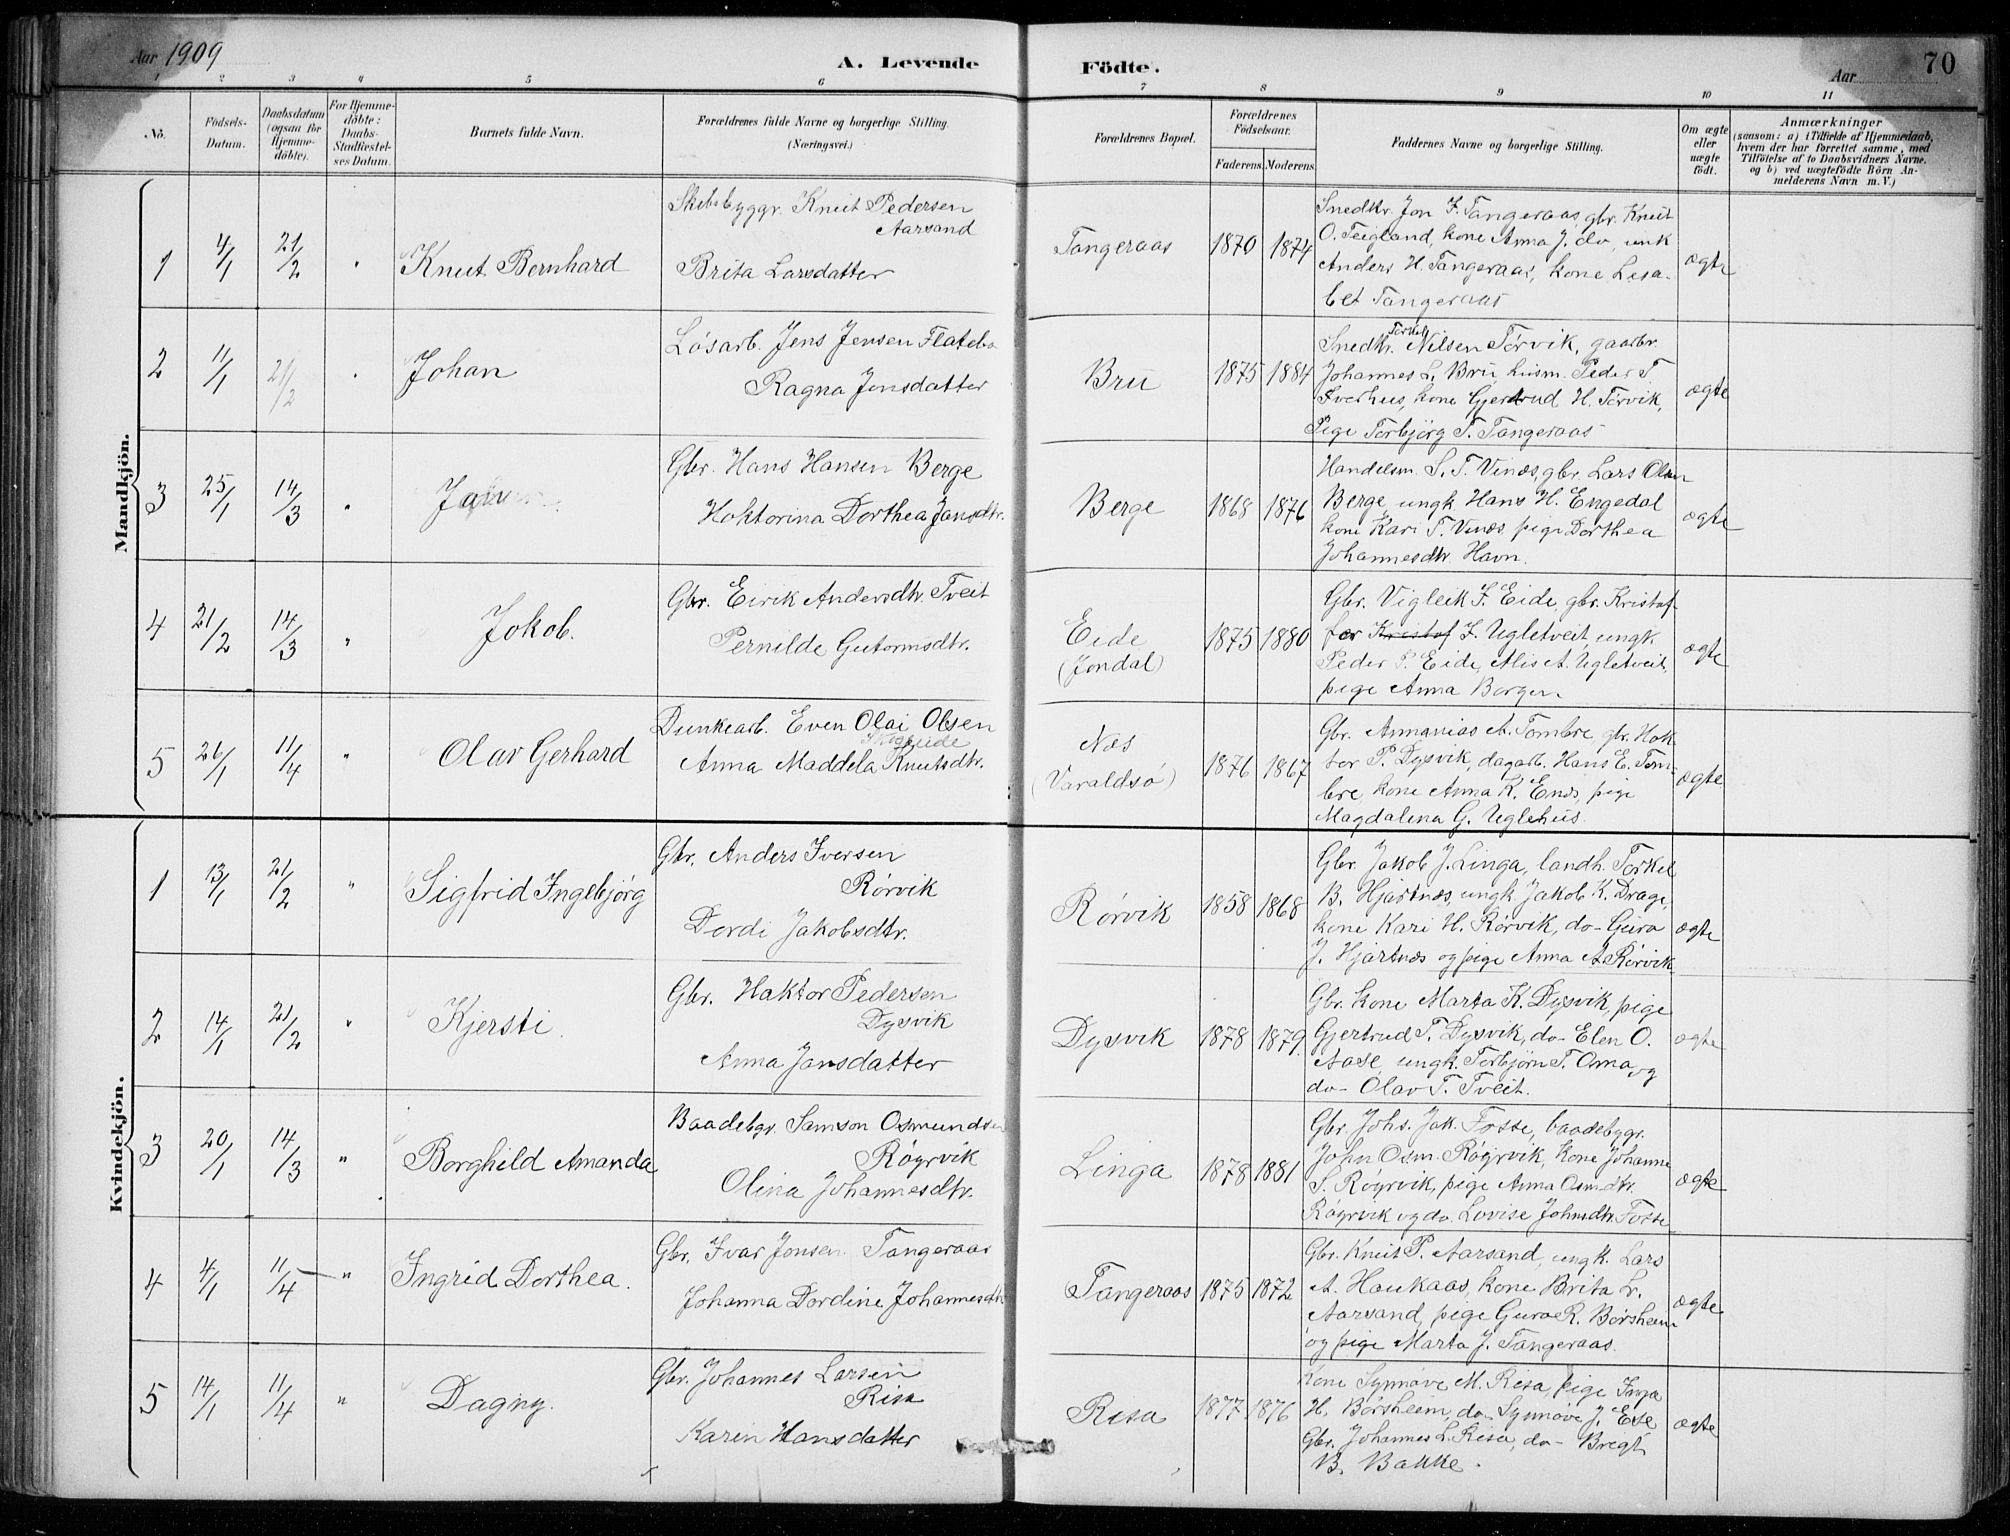 Aar 1909
A. Levende
Födte.
Aar
70
1
2
3
4
5
6
7
8
9
10
11
No.
Födsels-
Datum.
Daabsdatum
(ogsaa för
Hjemme-
döbte).
For Hjemme-
döbte:
Daabs-
Stadfæstel-
ses Datum.
Barnets fulde Navn.
Forældrenes fulde Navne og borgerlige Stilling.
(Næringsvei.)
Forældrenes Bopæl.
Forældrenes
Födselsaar.
Faderens.
Moderens.
Faddernes Navne og borgerlige Stilling.
Om ægte
eller
uægte
födt.
Anmærkninger
(saasom: a) i Tilfælde af Hjemmedaab,
hvem der har forrettet samme, med
Tilföielse af to Daabsvidners Navne.
og b) ved uægtefödte Börn An-
melderens Navn m. V.)
Mandkjön.
1
4/1
21/2
"
Knut Bernhard
Skibsbyggr. Knut Pedersen
Aarsand
Brita Larsdatter
Tangeraas
1870
1874
Snedkr. Jon J. Tangeraas, gbr. Knut
O. Teigland, kone Anna J. do, unk
Anders H. Tangeraas, kone Lisa-
bet Tangeraas
ægte
2
11/1
21/2
"
Johan
Løsarb. Jens Jensen Flatebø
Ragna Jonsdatter
Bru
1875
1884
Snedkr. Torkel Nilsen Torvik, gaarbr.
Johannes L. Bru husm. Peder T.
Sverhus, kone Gjertrud H. Torvik,
Pige Torbjörg T. Tangeraas
ægte
3
25/1
14/3
"
Gbr. Hans Hansen Berge
Hoktorina Dorthea Jansdtr.
Berge
1868
1876
Handelsm. S. T. Vinæs, gbr. Lars Olsen
Berge, ungk Hans H. Engedal
kone Kari T. Vinæs, pige Dorthea
Johannesdtr. Havn.
ægte
4
21/2
14/3
"
Jokob.
Gbr. Eirik Andersdtr. Tveit
Pernilde Gutormsdtr.
Eide
(Jondal)
1875
1880
Gbr. Vigleik J. Eide, gbr. Kristof-
fer Kristof J. Ugletveit, ungk.
Peder P. Eide, Alis A. Ugletveit,
pige Anna Borgen
ægte
5
26/1
11/4
"
Olav Gerhard
Dunkearb. Even Olai Olsen
Anna Maddela Knutsdtr.
Næs
(Varaldsö)
1876
1867
Gbr. Annanias A. Tombre, gbr. Hok-
tor P. Dysvik, dagarb. Hans E. Tom-
bre, kone Anna K. Enæs, pige
Magdalena G. Uglehus.
ægte
Kvindekjön.
1
13/1
21/2
"
Sigfrid Ingebjörg
Gbr. Anders Iversen
Rörvik
Dordi Jakobsdtr.
Rörvik
1858
1868
Gbr. Jakob J. Linga, landh. Torkel
B. Hjartnæs, ungk. Jakob K. Drage,
kone Kari H. Rörvik, do- Guro
J. Hjartnæs og pige Anna A. Rörvik.
ægte
2
14/1
21/2
"
Kjersti.
Gbr. Haktor Pedersen
Dysvik
Anna Jansdatter
Dysvik
1878
1879.
Gbr. kone Marta K. Dysvik, pige
Gjertrud T. Dysvik, do- Elen O.
Aase, ungk. Torbjørn T. Oma og
do- Olav T. Tveit.
ægte
3
20/1
14/3
"
Borghild Amanda
Baadebgr. Samson Osmundsen
Röyrvik
Olina Johannesdtr.
Linga
1878
1881
Gbr. Johs. Jak. Fosse, baadebygr.
John Osm. Röyrvik, kone Johanne
S. Röyrvik, pige Anna Osmdtr.
Röyrvik og do. Lovise Johnsdtr. Fosse
ægte
4
4/1
11/4
"
Ingrid Dorthea.
Gbr. Ivar Jonsen Tangeraas
Johanna Dordine Johannesdtr
Tangeraas
1875
1872
Gbr. Knut P. Aarsand, ungk. Lars
A. Haukaas, kone Brita L.
Aarsand, pige Guro R. Börsheim
og pige Marta J. Tangeraas.
ægte
5
14/1
11/4
"
Dagny.
Gbr. Johannes Larsen
Risa
Karin Hansdatter
Risa
1877
1876
Kone Synnøve M. Risa, pige Inga
H. Börsheim, do- Synnøve J. Ese
Gbr. Johannes L. Risa, do- Bregt
B. Bakke.
ægte